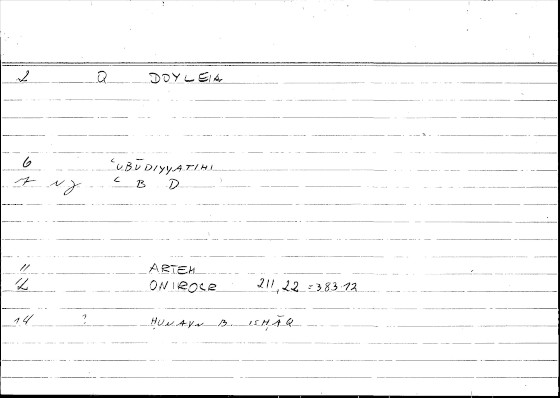 2 Q DOYLEIA
6 ʿUBŪDIYYATIHI
7 NJ ʿ B D
11 ARTEM
12 ONIROCR 211,22 =383.12
14 ? ḤUNAYN B. ISḤĀQ